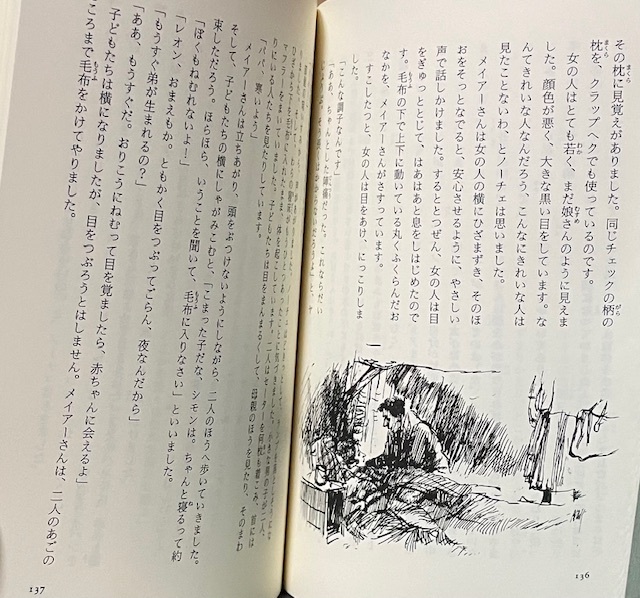 その枕に見覚えがありました。同じチェックの柄の
枕を、クラップヘクでも使っているのです。
女の人はとても若く、まだ娘さんのように見えま
した。顔色が悪く、大きな黒い目をしています。な
んてきれいな人なんだろう、こんなにきれいな人は
見たことないわ、とノーチェは思いました。
メイアーさんは女の人の横にひざまずき、そのほ
おをそっとなでると、安心させるように、やさしい
声で話しかけました。するととつぜん、女の人は目
をぎゅっととじて、はあはあと息をしはじめたので
す。毛布の下で上下に動いている丸くふくらんだお
なかを、メイアーさんがさすっています。
すこしたつと、女の人は目をあけ、にっこりしま
した。
「こんな調子なんです」
136
マフラーを毛布に入れたまま、体を起こしています。
りにいる人たちを見たりしています。
「パパ、寒いよう」
メイアーさんは立ちあがり、頭をぶつけないようにしながら、二人のほうへ歩いていきました。
そして、子どもたちの横にしゃがみこむと、「こまった子だな、シモンは。ちゃんと寝るって約
束しただろう。ほらほら、いうことを聞いて、毛布に入りなさい」といいました。
「ぼくもねむれないよ!」
「レオン、おまえもか。ともかく目をつぶってごらん、夜なんだから」
「もうすぐ弟が生まれるの?」
「ああ、もうすぐだ。おりこうにねむって目を覚ましたら、赤ちゃんに会えるよ」
子どもたちは横になりましたが、目をつぶろうとはしません。メイアーさんは、二人のあごの
ころまで毛布をかけてやりました。
137